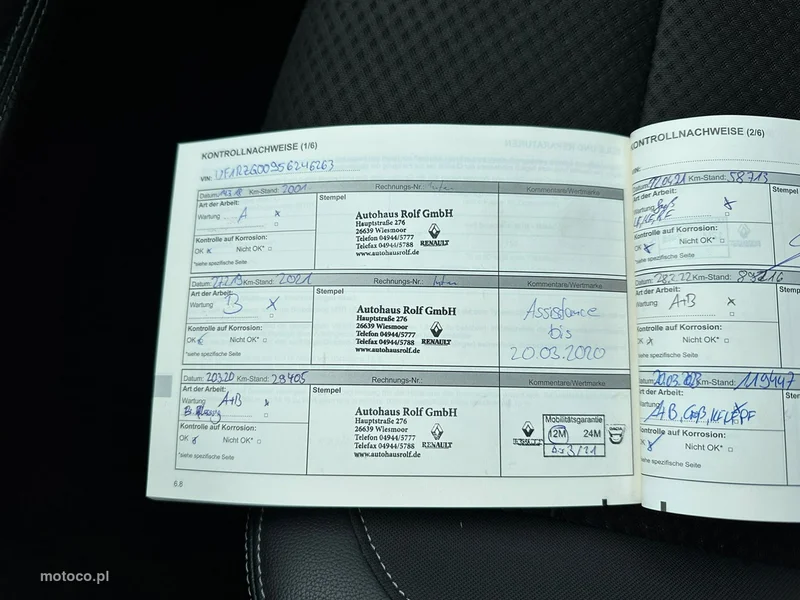 KONTROLLNACHWEISE (1/6)
VIN:
Datum: Km-Stand: 2001 Rechnungs-Nr.: Kommentare/Wertmarke
Art der Arbeit: Stempel
Wartung A x
Kontrolle auf Korrosion:
OK x Nicht OK*
*siehe spezifische Seite
Autohaus Rolf GmbH
Hauptstraße 276
26639 Wiesmoor
Telefon 04944/5777
Telefax 04944/5788
www.autohausrolf.de
RENAULT
Datum: Km-Stand: Rechnungs-Nr.: Kommentare/Wertmarke
Art der Arbeit: Stempel
Wartung B x
Kontrolle auf Korrosion:
OK Nicht OK*
*siehe spezifische Seite
Autohaus Rolf GmbH
Hauptstraße 276
26639 Wiesmoor
Telefon 04944/5777
Telefax 04944/5788
www.autohausrolf.de
RENAULT
Assistance
bis
20.03.2020
Datum: 20320 Km-Stand: 29405 Rechnungs-Nr.: Kommentare/Wertmarke
Art der Arbeit: Stempel
Wartung A+B x
Kontrolle auf Korrosion:
OK x Nicht OK*
*siehe spezifische Seite
Autohaus Rolf GmbH
Hauptstraße 276
26639 Wiesmoor
Telefon 04944/5777
Telefax 04944/5788
www.autohausrolf.de
RENAULT
RENAULT
Mobilitätsgarantie
12M 24M
3/21
DACIA
6.8
KONTROLLNACHWEISE (2/6)
VIN:
Datum: Km-Stand: 58713
Art der Arbeit:
Wartung x
Kontrolle auf Korrosion:
OK x Nicht OK*
*siehe spezifische Seite
Datum: 28.2.22 Km-Stand:
Art der Arbeit:
Wartung A+B x
Kontrolle auf Korrosion:
OK x Nicht OK*
*siehe spezifische Seite
Datum: Km-Stand: 119447
Art der Arbeit:
Wartung
Kontrolle auf Korrosion:
OK x Nicht OK*
*siehe spezifische Seite
motoco.pl